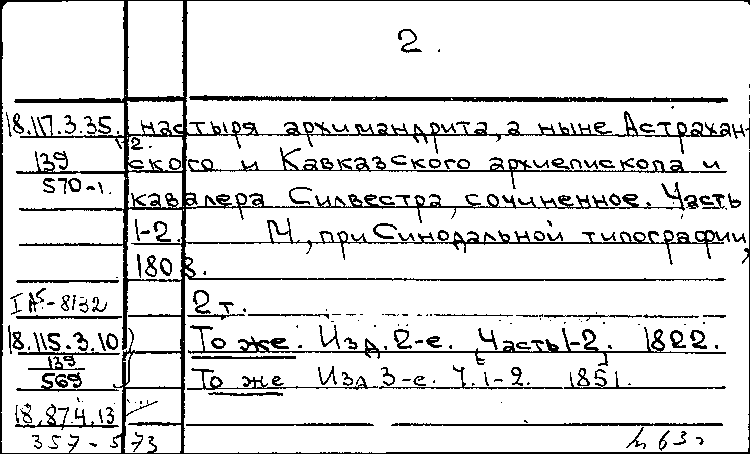 2.
18.117.3.35. настыря архимандрита, а ныне Астрахан
1-2.
139 ского и Кавказского архиепископа и
570-1. кавалера Силвестра, сочиненное. Часть
1-2. М., при Синодальной типографии,
1808.
IA5-8132 2 т.
18.115.3.10 То же. Изд. 2-е. Часть 1-2. 1822.
139
569 То же Изд 3-е. Ч. 1-2. 1851.
18.874.13
357-573